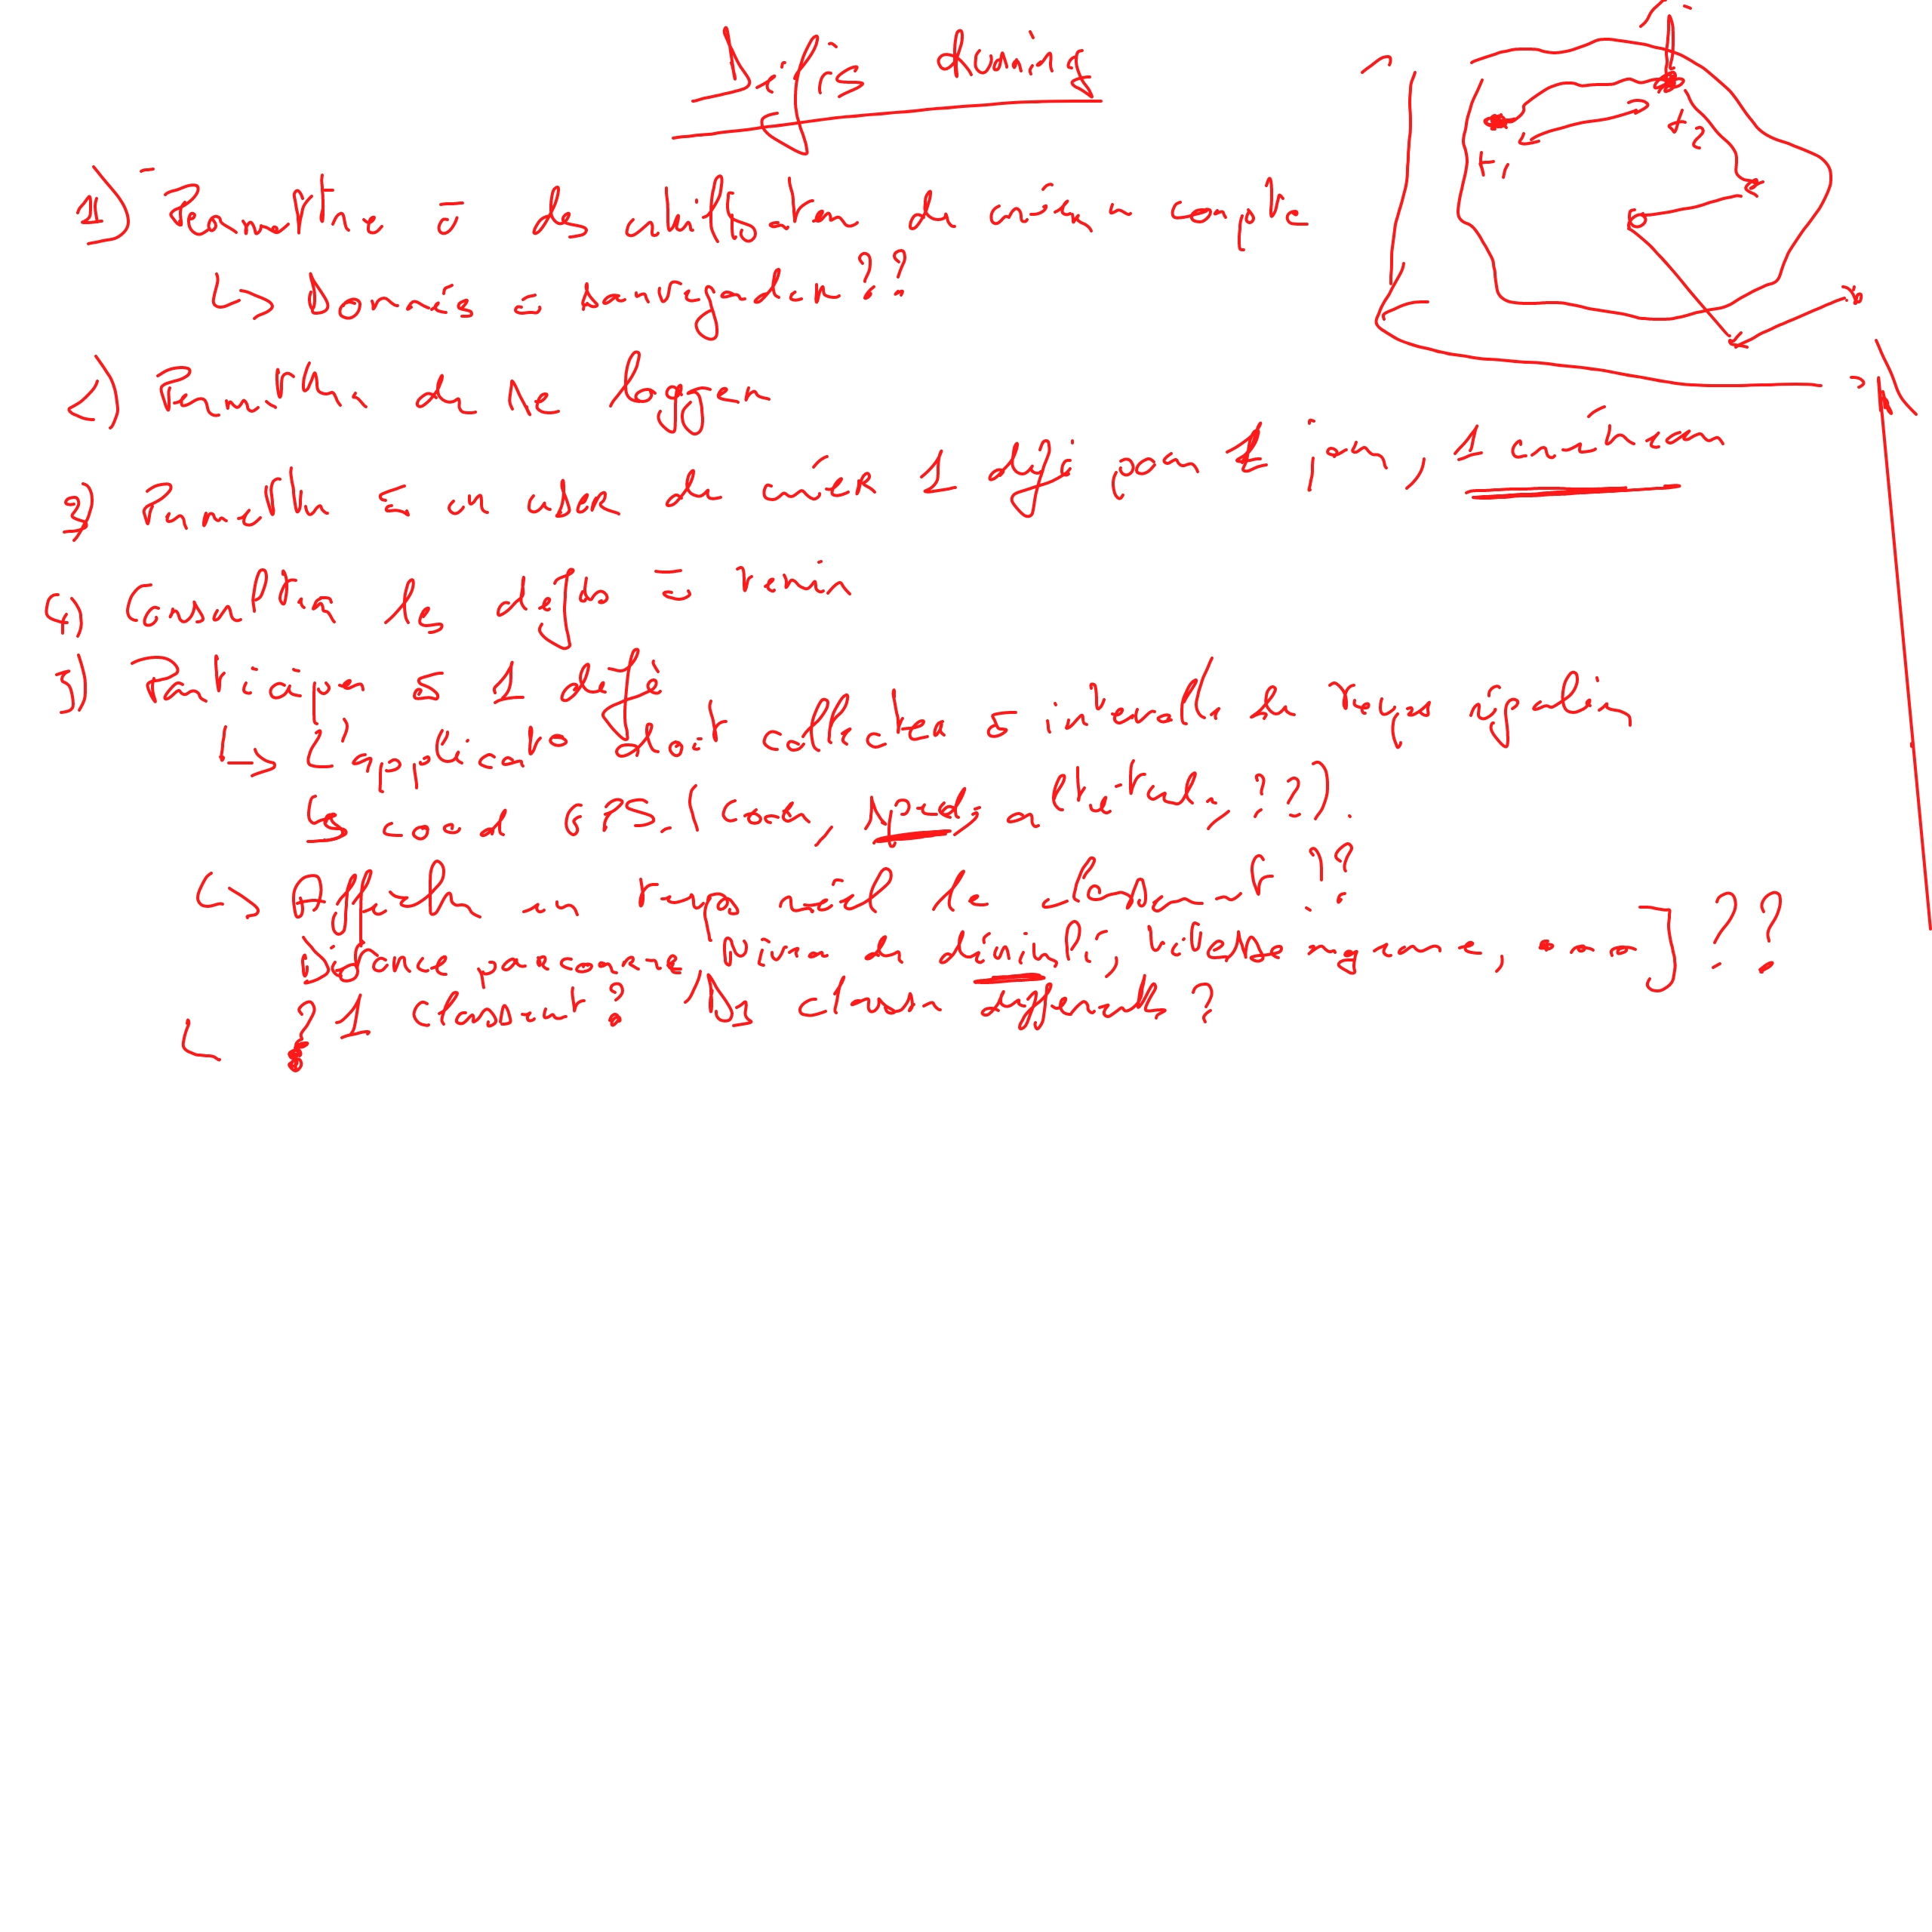 Défis driving
1) Permettre à des utilisateurs de créer un compte
↳ Données à enregistrer ??
2) Permettre de se logger
3) Permettre à un user de créer 1 défi par jour, 1 minimum
4) Consulter les défis à venir
5) Participer à 1 défi
↳ L'application doit collecter à intervalle régulier
↳ coord GPS (cap, speed, altitude, ??).
↳ Afficher en temps réel le classement ??
Distance parcourue, Dénivelé, vitesse moyenne, ] ??
↳ 1 comment ? Its chacun apprends ?
t1
t2